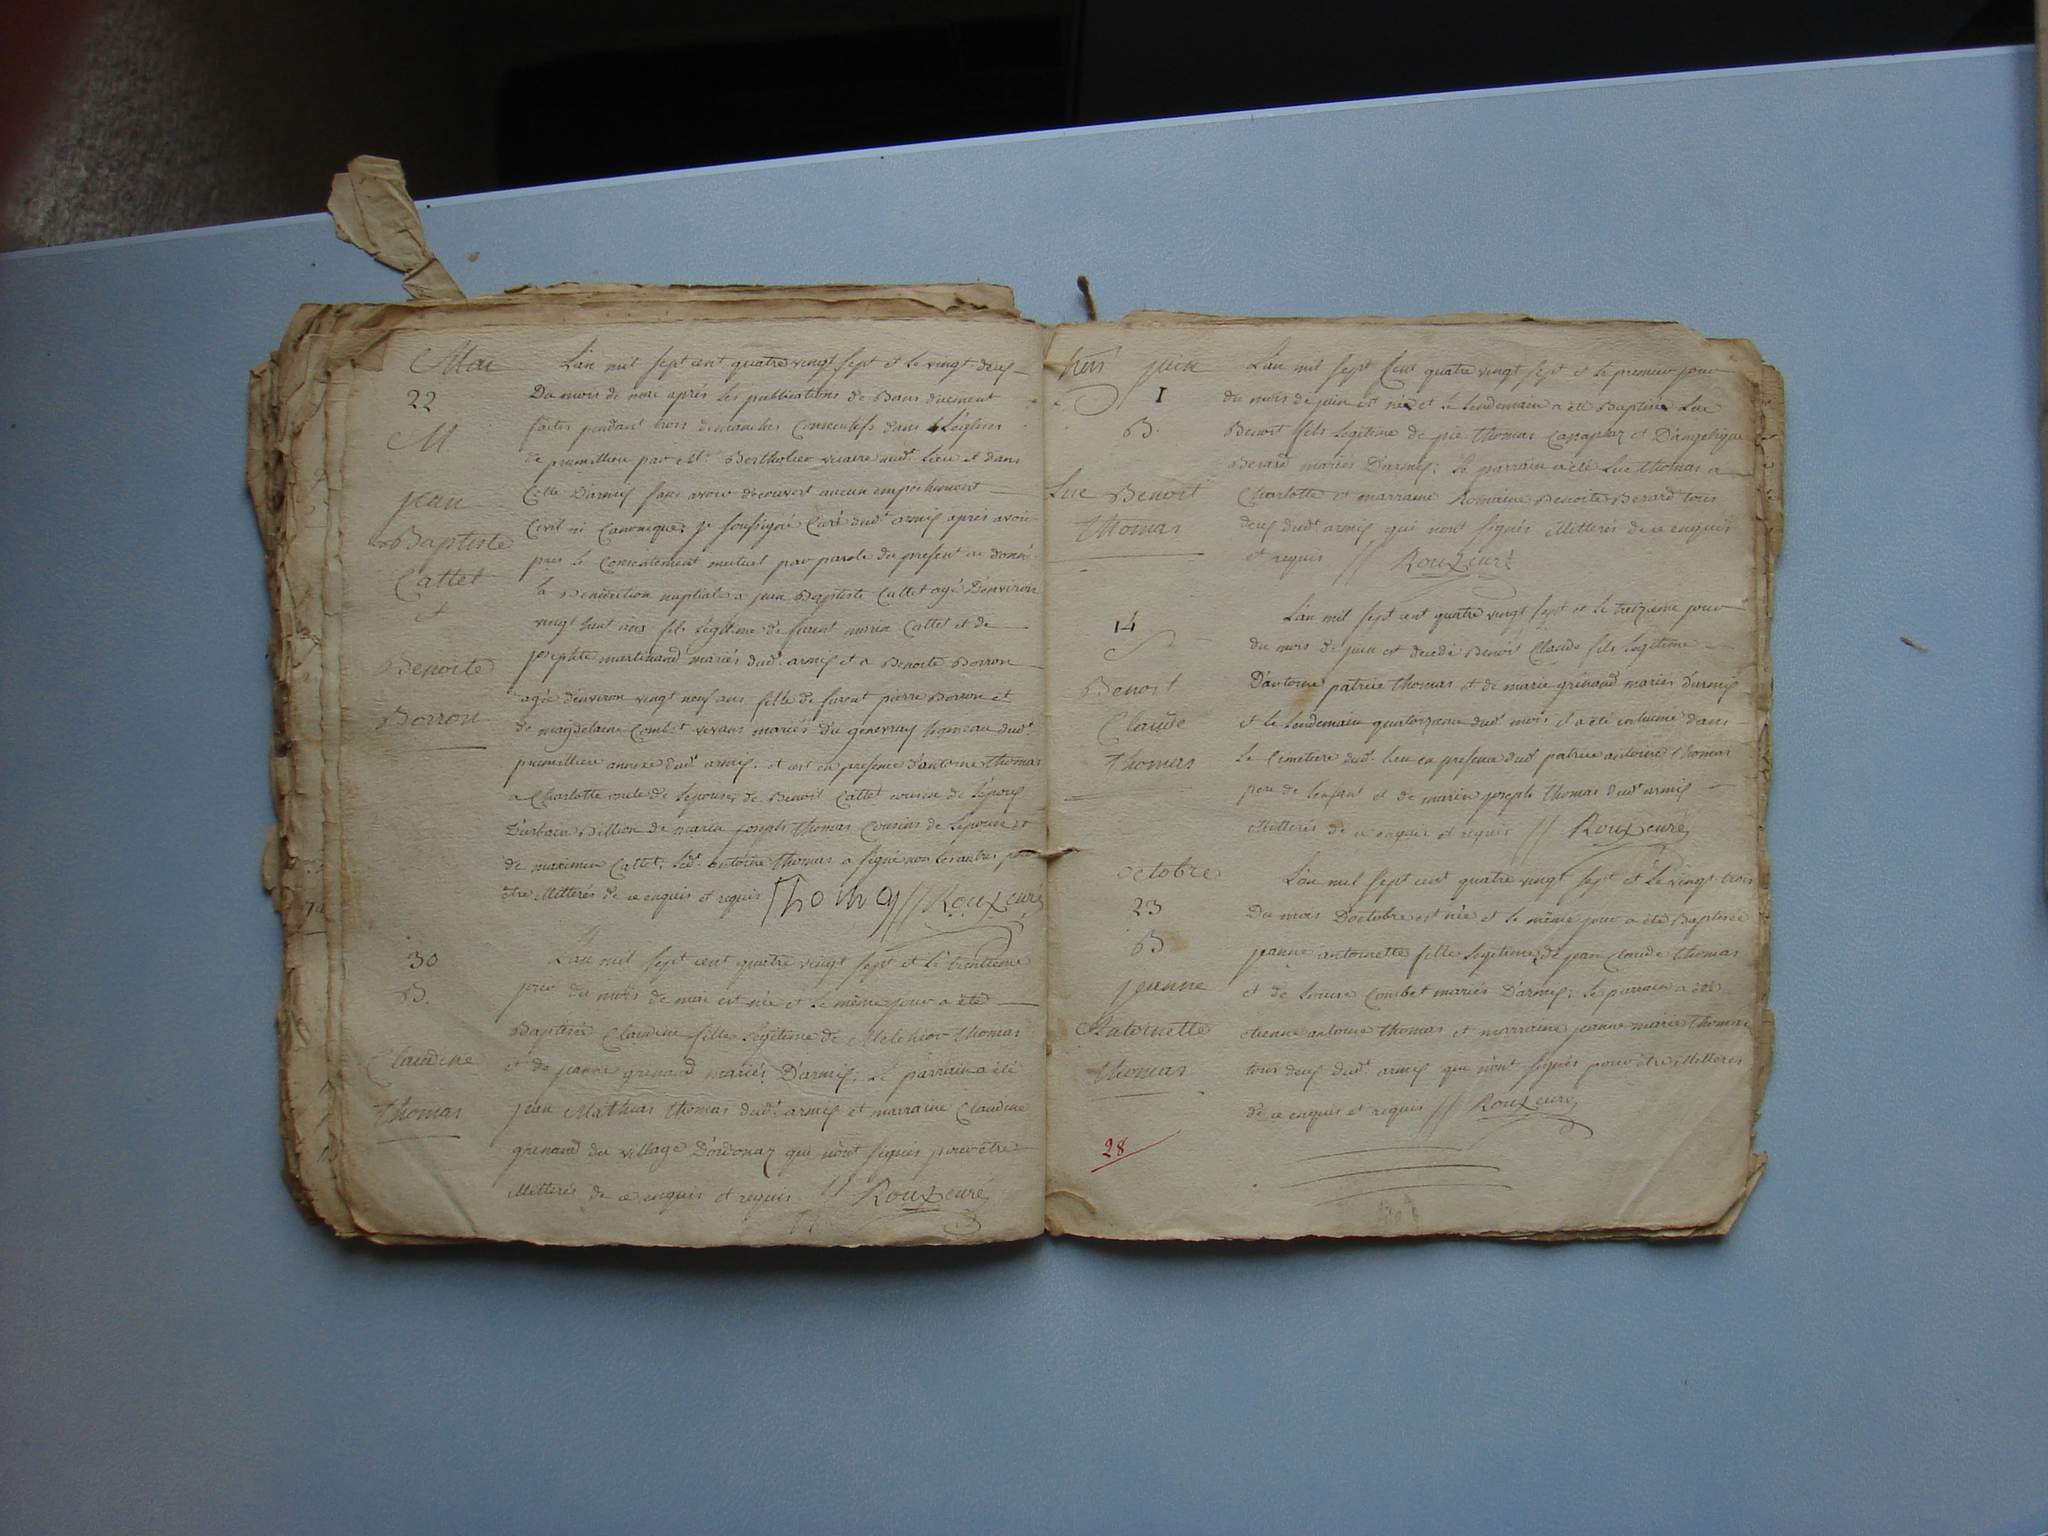 Mai
22
M.
jean
Baptiste
Cattet
et
Benoite
Borron
L'an mil sept cent quatre vingt sept et le vingt deux
Du mois de mai après les publications de Bans duement
faites pendant trois dimanches Consecutifs dans L'église
de premillieu par Mr. Bertholier vicaire dudt. Lieu et dans
Celle D'armix sans avoir découvert aucun empêchement
Civil ni Canonique; je soussigné Curé dudt armix après avoir
pris le Consentement mutuel par parole du present ai donné
la Benediction nuptiale a jean Baptiste Cattet agé D'environ
vingt huit ans fils Légitime de feu marin Cattet et de
josephte martinand mariés dudt. armix et a Benoite Borron
agée d'environ vingt neuf ans fille de pierre Borron et
de magdelaine Combet vivans mariés du genevray hameau dudt.
premillieu annexe dudt armix. et cest en presence d'antoine thomas
a Charlotte oncle de Lepouse, de Benoit Cattet cousin de Lepoux
D'urbain Billion de marin joseph thomas Cousins de Lepouse et
de maximin Cattet. Ledt. antoine thomas a signé non les autres pour
être illitterés de ce enquis et requis Thomas // Roux curé
30
B.
Claudine
thomas
L'an mil sept cent quatre vingt sept et le trentieme
jour du mois de mai est née et le même jour a été
Baptisée Claudine fille Légitime de Melchior thomas
et de jeanne grinand mariés D'armix; Le parrain a été
jean Mathias thomas dudt. armix et marraine Claudine
grinand du village D'ordonaz qui n'ont signés pour être
illitterés de ce enquis et requis // Roux curé
juin
1
B.
Luc Benoit
thomas
L'an mil sept Cent quatre vingt sept et le premier jour
du mois de juin est né et le lendemain a été Baptisé Luc
Benoit fils Legitime de thomas et D'angelique
Berard mariés D'armix; Le parrain a été Luc thomas a
Charlotte et marraine Romaine Benoite Berard tous
deux dudt armix qui nont signés illitterés de ce enquis
et requis // Roux curé
14
S
Benoit
Claude
thomas
L'an mil sept cent quatre vingt sept et le treizieme jour
du mois de juin est decedé Benoit Claude fils Legitime
D'antoine patrice thomas et de marie grinand mariés d'armix
et le lendemain quatorzieme dudt. mois il a été inhumé dans
Le Cimetiere dudt. lieu en presence dudt patrice antoine thomas
pere de l'enfant et de marin joseph thomas dudt armix
illitterés de ce enquis et requis // Roux curé
octobre
23
B
jeanne
Antoinette
thomas
L'an mil sept cent quatre vingt sept et Le vingt trois
Du mois D'octobre est née et le même jour a été Baptisée
jeanne antoinette fille Legitime de jean Claude thomas
et de Louise Combet mariés D'armix; Le parrain a été
etienne antoine thomas et marraine jeanne marie thomas
tous deux dudt. armix qui n'ont signés pour être illitterés
de ce enquis et requis // Roux curé
28